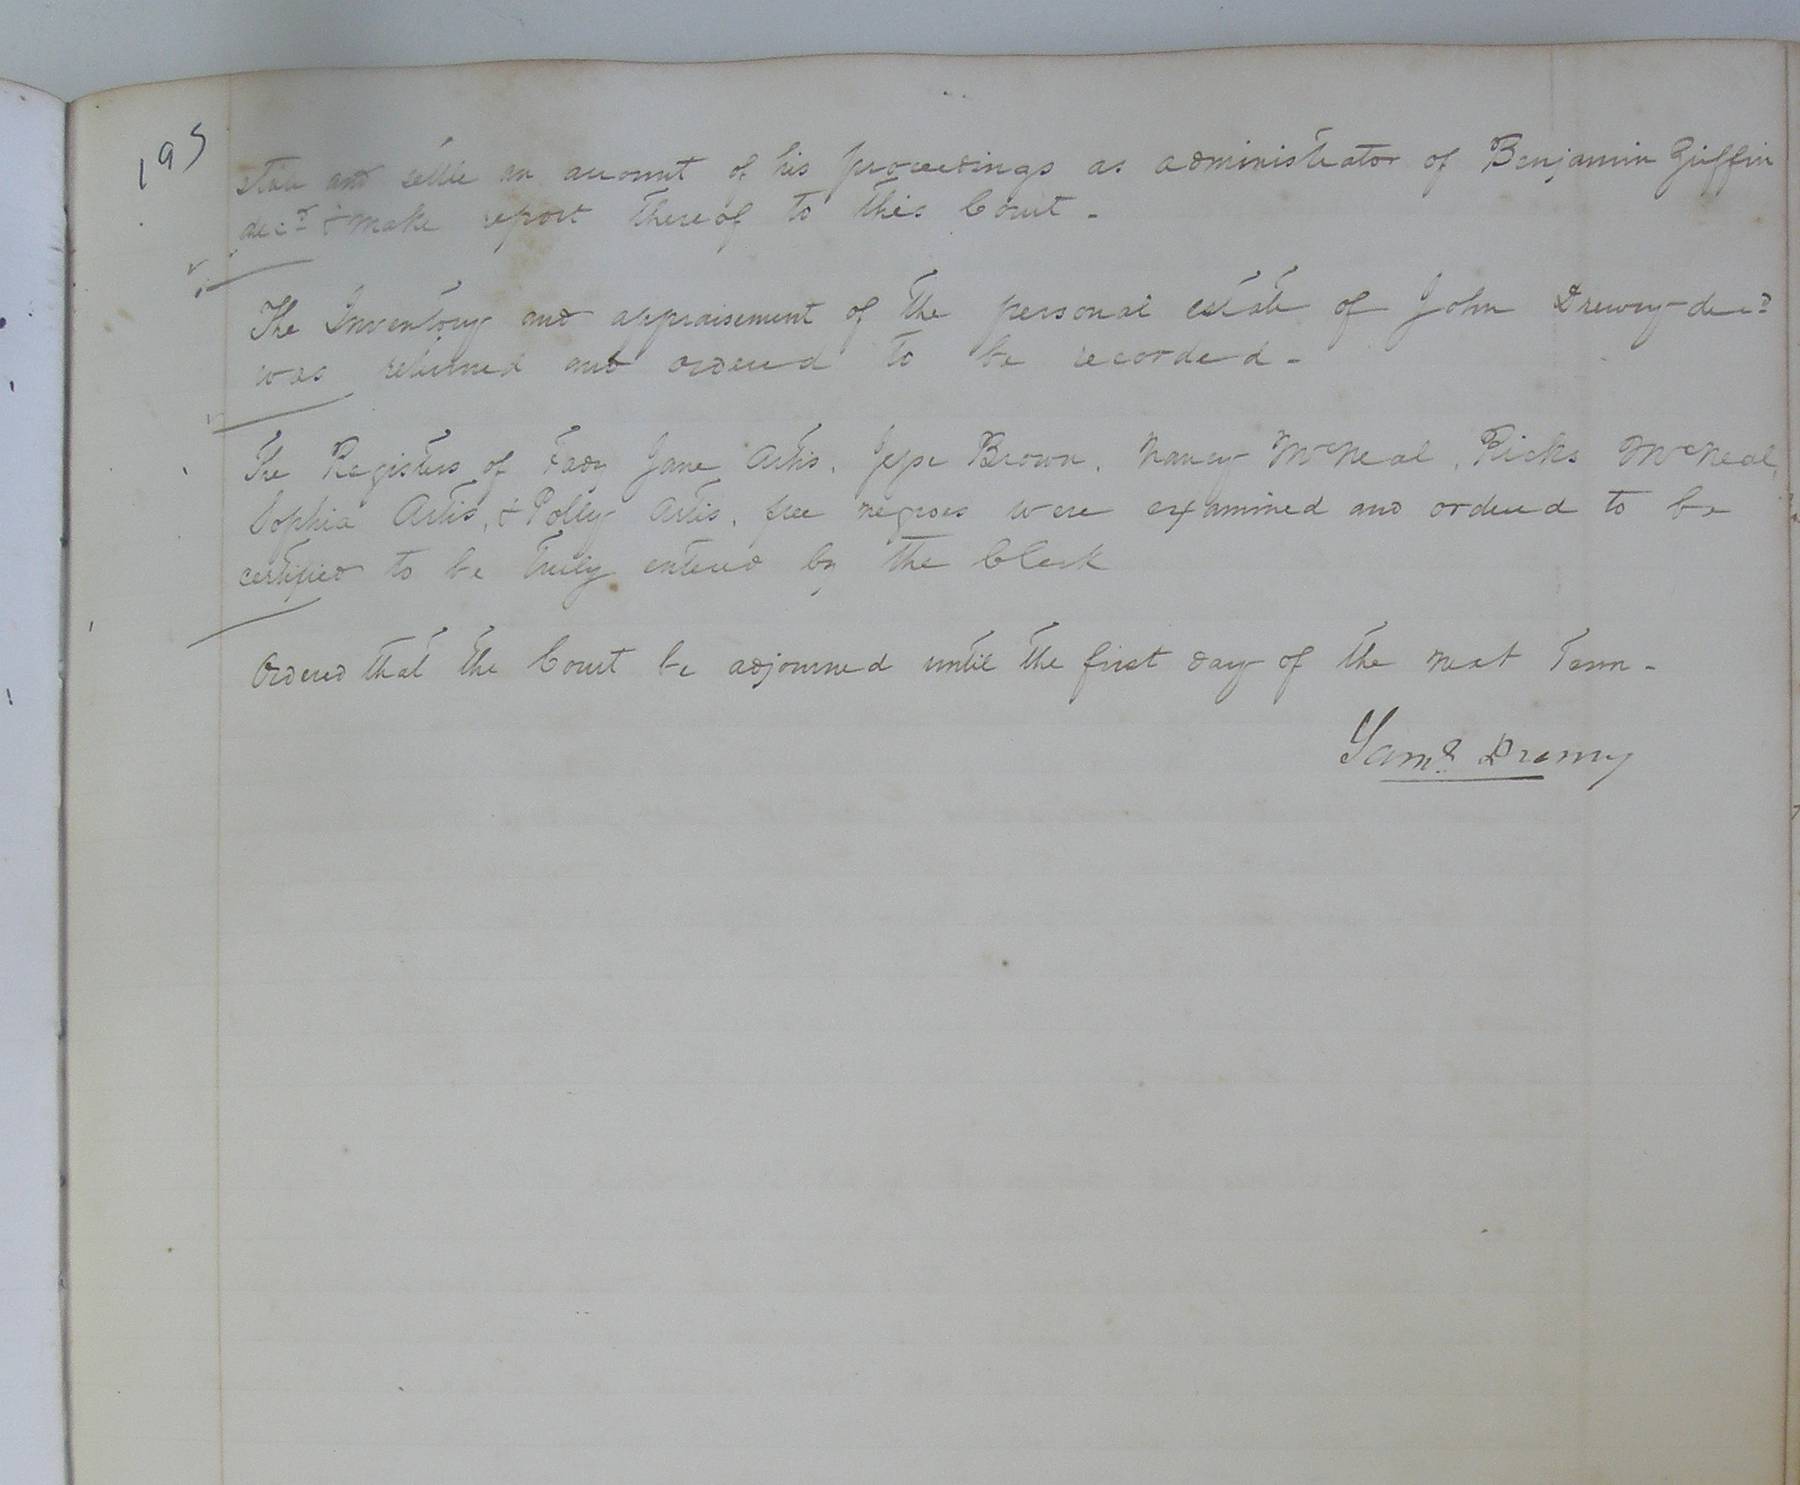 195
state and settle an account of his proceedings as administrator of Benjamin Griffin
decd & make report thereof to this Court -
The Inventory and appraisement of the personal estate of John Drewry decd
was returned and ordered to be recorded -
The Registers of Eady Jane Artis, Jesse Brown, Nancy McNeal, Ricks McNeal,
Sophia Artis, & Polly Artis, free negroes were examined and ordered to be
certified to be truly entered by the Clerk
Ordered that the Court be adjourned until the first day of the next Term -
Saml Drewry